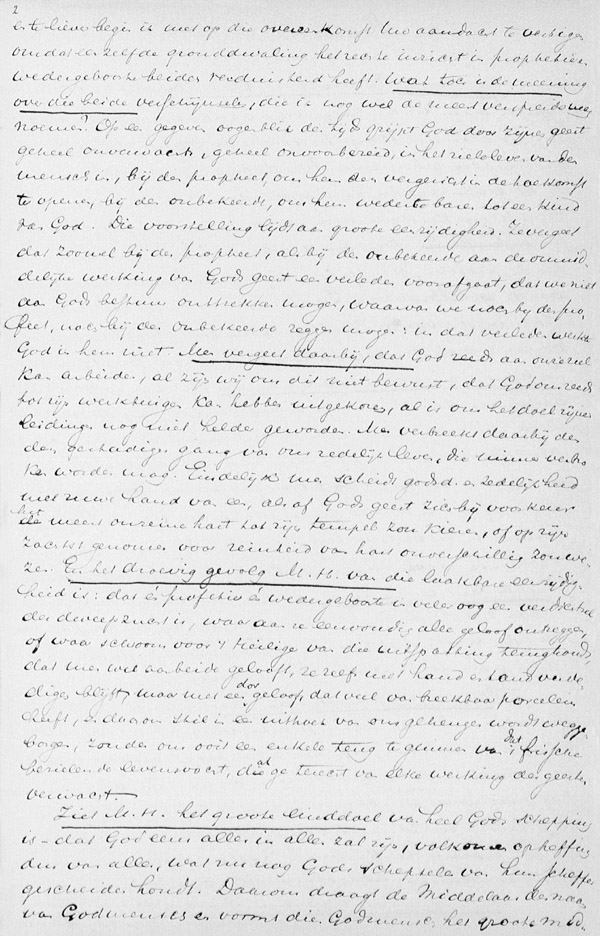 2
en te liever begin ik met op die overeenkomst Uw aandacht te vestigen
omdat een zelfde gronddwaling het rechte inzicht in prophetie en
wedergeboorte beiden verduisterd heeft. Wat toch is de meening
over die beide verschijnselen, die ik nog wel de meest verspreide mag
noemen? Op een gegeven oogenblik des tijds grijpt God door zijnen geest
geheel onverwacht, geheel onvoorbereid, in het zieleleven van den
mensch in, bij den propheet, om hem den vergezicht in de toekomst
te openen, bij den onbekeerde, om hem weder te baren tot een kind
van God. Die voorstelling lijdt aan groote eenzijdigheid. Ze vergeet
dat zoowel bij den propheet, als bij den onbekeerde aan de onmid-
delijke werking van Gods geest een verleden voorafgaat, dat we niet
aan Gods bestuur onttrekken mogen, waarvan we noch bij den pro
feet, noch bij den onbekeerde zeggen mogen: in dat verleden werkte
God in hem niet. Men vergeet daarbij, dat God reeds aan onze ziel
kan arbeiden, al zijn wij ons dit niet bewust, dat God ons reeds
tot zijn werktuigen kan hebben uitgekozen, al is ons het doel zijner
leidingen nog niet helder geworden. Men verbreekt daarbij den
gang van ons redelijk leven, die nimmer verbro
ken worden mag. Eindelijk men scheidt godsd. en zedelijkheid
met ruwe hand van een, als of Gods geest zich bij voorkeur
het meest onreine hart tot zijn tempel zou kiezen, of op zijn
zachtst genomen voor reinheid van hart onverschillig zou we-
zen. En het droevig gevolg M. H. van die laakbare eenzijdig-
heid is: dat én profetie én wedergeboorte in veler oog een
der dweepzucht is, waar aan ze eenvoudig alle geloof ontzeggen,
of waar schroom voor 't Heilige van die miskenning terughoudt,
dat men wel aan beide gelooft, ze zelfs met hand en tand verde
digen blijft, maar met een dor geloof, dat veel van breekbaar porcelein
heeft, en daarom stil in een uithoek van ons geheugen wordt wegge
borgen, zonder ons ooit een enkele teug te gunnen van dat frissche
bezielende levensvocht, die al ge terecht van elke werking des geestes
verwacht.
Ziet M. H. het groote einddoel van heel Gods schepping
is – dat God eens alles in allen zal zijn, volkomen opheffing
dus van alles, wat nu nog Gods schepselen van hun schepper
gescheiden houdt. Daarom draagt de Middelaar den naam
van Godmensch en vormt die Godmensch het groote mid-